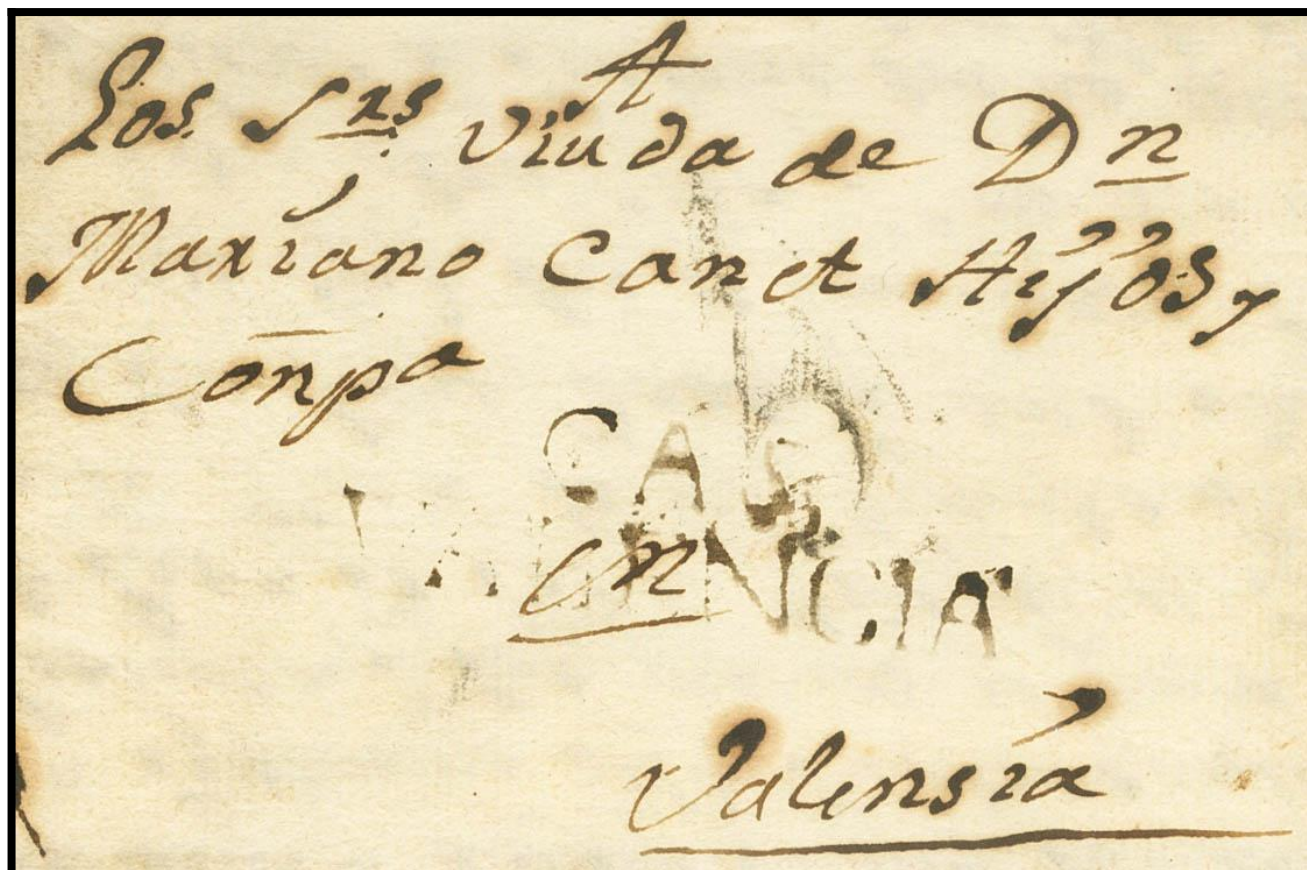 A
Los Srs viuda de Dn
Maxiano Canet Hijos y
Compa
VALENCIA
en
Valensia